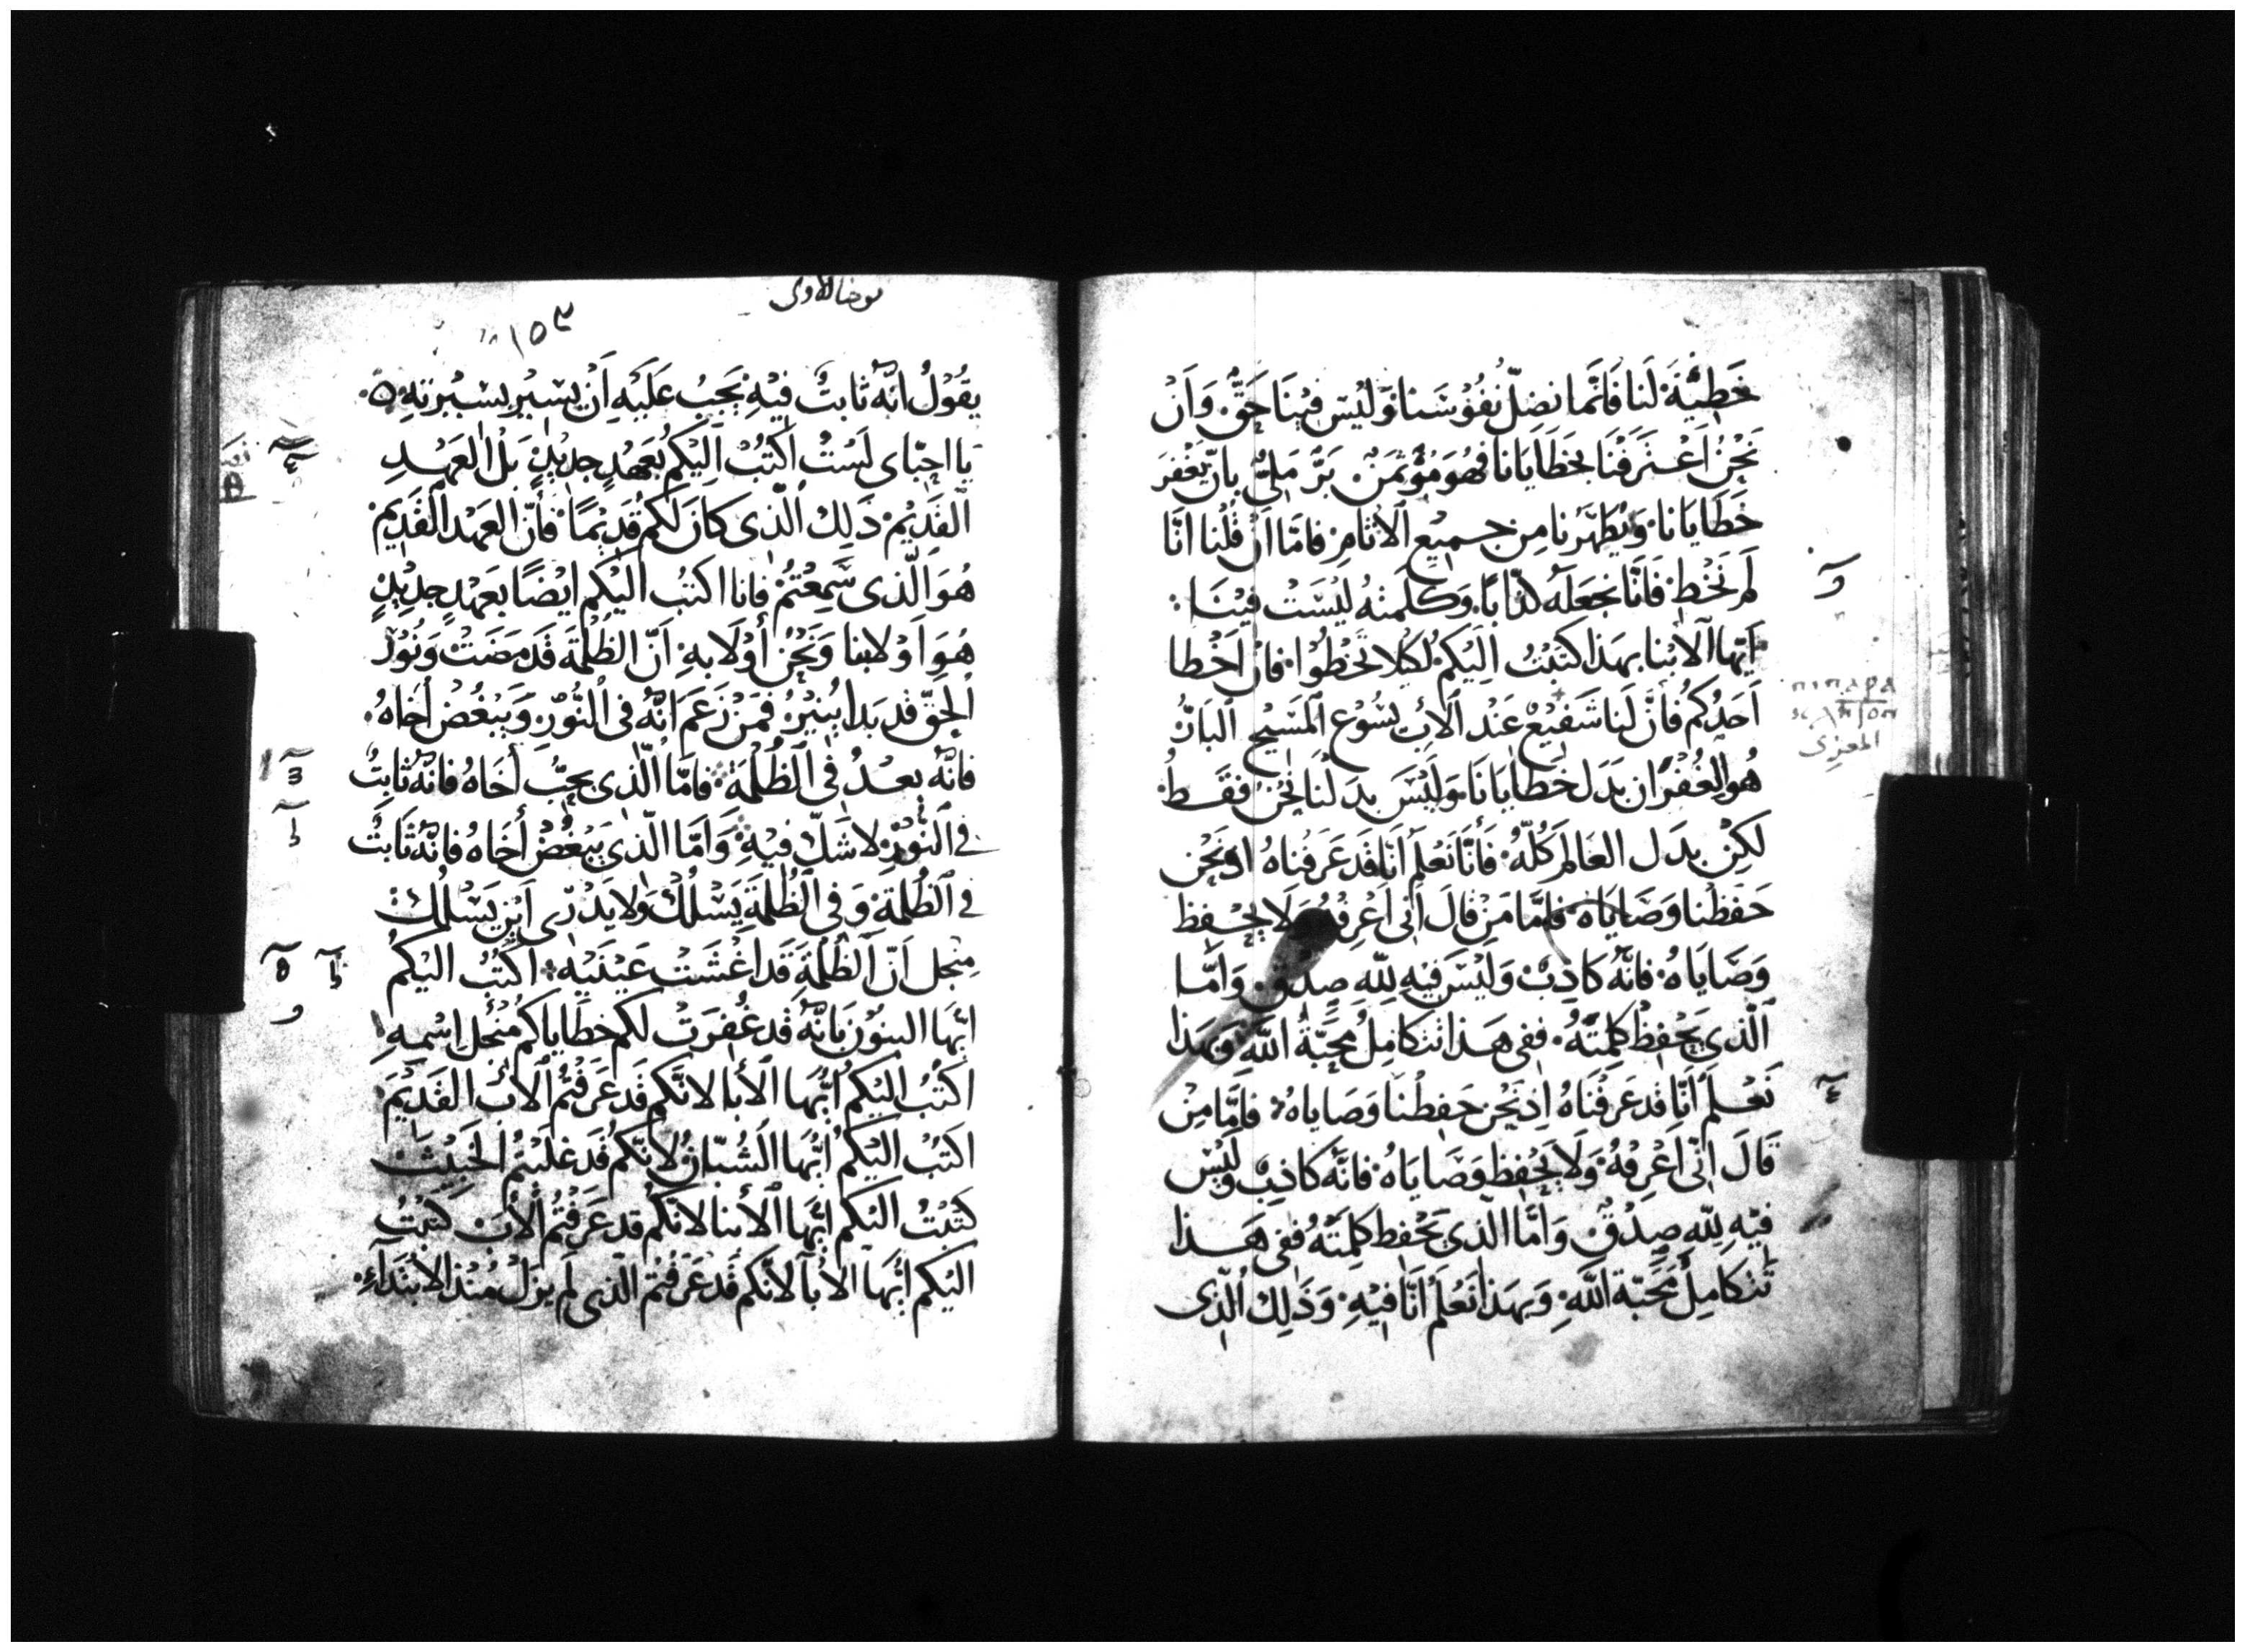 خَطِيَّةَ لَنا فَانَّما نضِلّ نُفُوْسَنا وَّلَيْسَ فِيْنَا حَقٌّ. وَاَنْ
نَحْنُ اَعْتَرَفْنَا بخَطَايَانا فهُوَ مُؤْتَمَنٌ بَرٌّ مَلِيٌّ بِانّ يَغْفرَ
خَطَايَانا. وَيُطَهّرَنا مِن جـمِيْعِ الاٰثامِ فامّا اَنْ قُلْنا انَّا
لَم نَخْط فَانَّا نجعَلهُ كذّابًا. وَكَلمتهُ ليْسَتْ فيْنَا:
اَيّها الاَبْنا بهَذا كتبْتُ اِلَيكم لكيْلا تخْطُوا. فانْ اَخْطا
اَحَدُكم فاَنَّ لَنا شَفيْعٌ عَنْد الاَبِ يسُوْع المَسَيْحِ البَارُّ
هُو الغُفْرَان بَدَل خَطايَانَا وَلَيْسَ بدَلْنا نَحْنُ فقَـط
لكِنْ بدَل العَالمَ كُلّهُ. فَاَنَّا نَعْلَم اَنّا قَد عَرَفْناهُ اذ نَحْن
حَفظْنا وَصَايَاه فامَّا مَنْ قالَ اَنى اَعْرِفهُ وَلَا يحْـفظ
وَصَايَاهُ. فانّهُ كَاذِبٌ وَلَيْسَ فيهِ لِلّهِ صِدْقٌ. وَامّـا
الّذى يَحْفظُ كلِمَتَهُ. ففى هَـذا تتكامِلُ مُحَبّةُ اللّهِ وبهَذا
نَعْـلَم اَنّا قد عَرفْنَاهُ اِذ نَحْن حَفِظْنا وَصَاياهُ: فامّا مِنْ
قَالَ انّى اَعْرِفهُ. وَلَا يَحْفِظ وَصَايَاهُ. فانَّه كاذِبٌ وليْسَ
فيْهِ لِلّهِ صِدْقٌ وَامّا الّذى يَحْفظ كلِمَتَهُ ففى هَـذا
تَتكامِلُ مَحَبّة اللّهِ. وَبهَذا نَعْلَم اَنَّا فيْهِ. وَذَلِك الّذى
المعزى
يوحنا الاولى
١٥٣
يقُوْلُ انّه ثابتٌ فيْهِ يَجَبُ عَلَيْهِ اَنْ يسِيْر بسْيْرتهِ.
يَا احبّاى لَسْتُ اَكتُبُ اليْكم بُعَهْدٍ جديْدٍ بَلْ العَهْـدِ
القَدِيْم ذَلِك الّذى كانَ لَكم قدِيْمًا. فأَنّ العَهْد القَدِيَم
هُوَ الّذى سَمِعْتُمْ فانا اكتبُ اليْكم ايْضًا بعَهْدٍ جدِيْدٍ
هُوَ اَوْلا بنا وَنَحْنُ أوْلَا بهِ. اَنّ الظُلْمَة قَد مَضَتْ وَنُوْرُ
الحَقّ قد بَدا يُنيْرُ. فمَنْ زَعَم انّهُ فى النُّوْرِ. وَيبْغُض أخاهُ.
فانّه بعـدُ فى الظُلْمَة. فامّا الّذى يحِبُّ أخَاهُ فانّه ثابتٌ
فى النُّوْرِ. لا شَكّ فيْهِ. وَامَّا الّذى يَبْغُض أخَاه فانّه ثَابتٌ
فى الظُلمَةِ. وَفى الظُلْمَةِ يَسْلُك وَلا يَدْرى اَيْن يَسْلُك.
مِنجل اَنّ الظُلْمَة قَد اغْشَتْ عَيْنَيْه: اكتُبُ اليْكمُ
ايّها البنوْن بَانّه قد غُفِرَتْ لكم خطَاياكم منْجْل اِسْمهِ
اكتُبُ اليْكمُ ايّها الاٰبا لانّكم قَد عَرَفْتُم الاَبَ القَديْمَ.
اكتبُ اليْكمُ ايّها الشُبّانُ لانّكم قَد غَلَبْتُم الخَبِيْث
كتَبْتُ اليْكم ايّها الاَبْنا لانّكم قد عَرَفتُم الاَبَ كتَبْتُ
اليْكم ايّها الاٰبا لانّكم قَد عَرَفْتُم الّذى لَم يزَل مُنْذ الابْتدَآءِ.